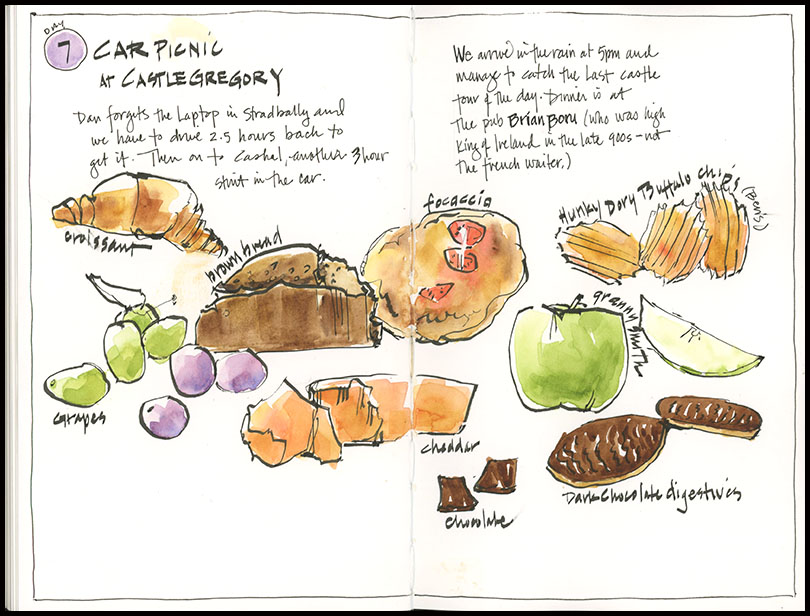 Day
7
CAR PICNIC
AT CASTLEGREGORY
Dan forgets the Laptop in Stradbally and
we have to drive 2.5 hours back to
get it. Then on to Cashel, another 3 hour
stint in the car.
We arrive in the rain at 5pm and
manage to catch the Last castle
tour of the day. Dinner is at
the pub Brian Boru (who was high
King of Ireland in the late 900s - not
the french waiter.)
croissant
brown bread
focaccia
Hunky Dory Buffalo chips
(Ben's)
granny smith
Grapes
cheddar
chocolate
Dark Chocolate digestives